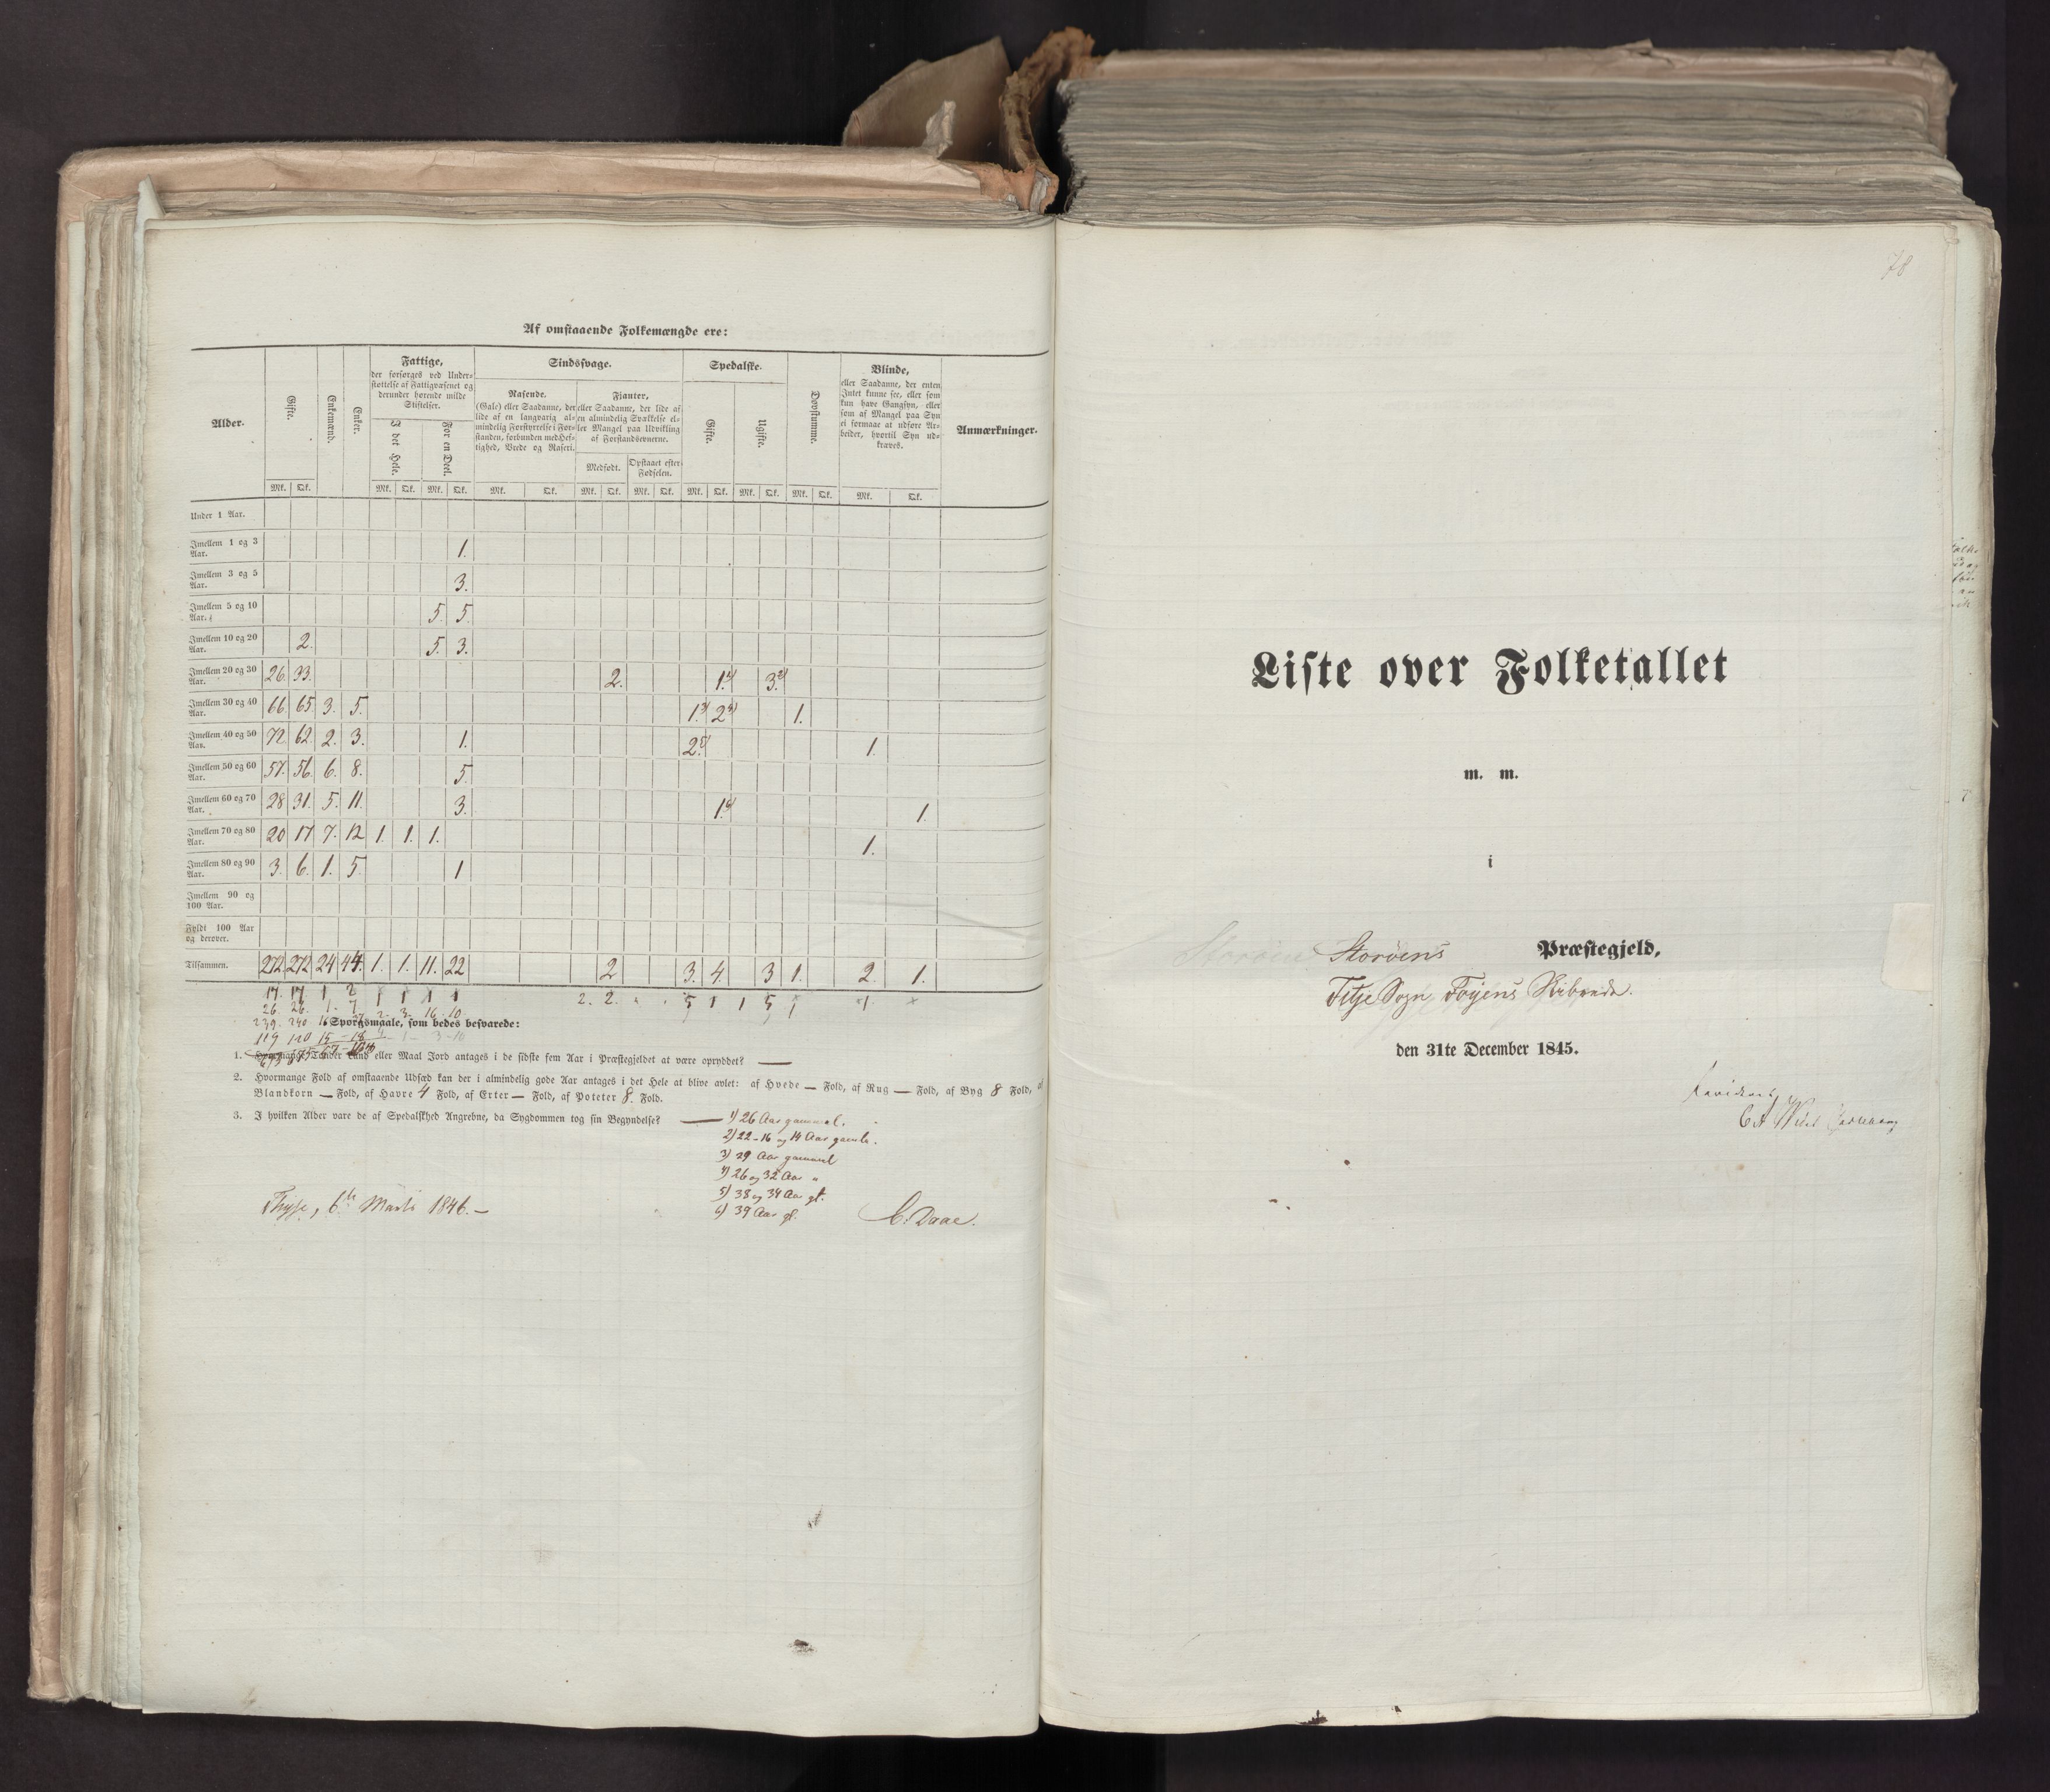 Af omstaaende Folkemængde ere:
Alder.
Gifte.
Enkemænd.
Enker.
Fattige,
der forsørges ved Under-
støttelse af Fattigvæsenet og
derunder hørende milde
Stiftelser.
I det Hele.
For en Deel.
Sindssvage.
Rasende.
(Gale) eller Saadanne, der
lide af en langvarig al-
mindelig Forstyrrelse i For-
standen, forbunden med Hef-
tighed, Vrede og Raseri.
Fjanter,
eller Saadanne, der lide af
en almindelig Svækkelse el-
ler Mangel paa Udvikling
af Forstandsevnerne.
Medfødt.
Opstaaet efter
Fødselen.
Spedalske.
Gifte.
Ugifte.
Døvstumme.
Blinde,
eller Saadanne, der enten
Intet kunne see, eller som
kun have Gangsyn, eller
som af Mangel paa Syn
ei formaae at udføre Ar-
beider, hvortil Syn ud-
kræves.
Anmærkninger.
Mk. Qk. Mk. Qk. Mk. Qk. Mk. Qk. Mk. Qk. Mk. Qk. Mk. Qk. Mk. Qk. Mk. Qk. Mk. Qk.
Under 1 Aar.
Imellem 1 og 3 Aar. 1.
Imellem 3 og 5 Aar. 3.
Imellem 5 og 10 Aar. 5. 5.
Imellem 10 og 20 Aar. 2. 5. 3.
Imellem 20 og 30 Aar. 26. 33. 2. 1.1) 3.2)
Imellem 30 og 40 Aar. 66 65 3. 5. 1.3) 2.4) 1.
Imellem 40 og 50 Aar. 72. 62. 2. 3. 1. 2.5) 1.
Imellem 50 og 60 Aar. 57. 56. 6. 8. 5.
Imellem 60 og 70 Aar. 28 31. 5. 11. 3. 1.6) 1.
Imellem 70 og 80 Aar. 20 17 7. 12 1. 1. 1. 1.
Imellem 80 og 90 Aar. 3. 6. 1. 5. 1
Imellem 90 og 100 Aar.
Fyldt 100 Aar og derover.
Tilsammen. 272 272 24 44. 1. 1. 11. 22 2 3. 4. 3 1. 2. 1.
17. 17 1 2
26. 26. 1. 7 2. 3. 16. 10. 2. 2. 5 1 1 5
239. 240 16
Spørgsmaale, som bedes besvarede:
119 120 15 18
1. Hvormange Tønder Land eller Maal Jord antages i de sidste fem Aar i Præstegjeldet at være opryddet? —
2. Hvormange Fold af omstaaende Udsæd kan der i almindelig gode Aar antages i det Hele at blive avlet: af Hvede — Fold, af Rug — Fold, af Byg 8 Fold, af
Blandkorn — Fold, af Havre 4 Fold, af Erter — Fold, af Poteter 8. Fold.
3. I hvilken Alder vare de af Spedalskhed Angrebne, da Sygdommen tog sin Begyndelse? — 1) 26 Aar gammel.
2) 22-16 og 14 Aar gamle.
3) 29 Aar gammel
4) 26 og 32 Aar "
5) 38 og 34 Aar gl.
6) 39 Aar gl.
6te Marts 1846.-
C. Daae.
78
Liste over Folketallet
m. m.
i
Storøens Præstegjeld,
Fitje Sogn Føyens Skibrede.
den 31te December 1845.